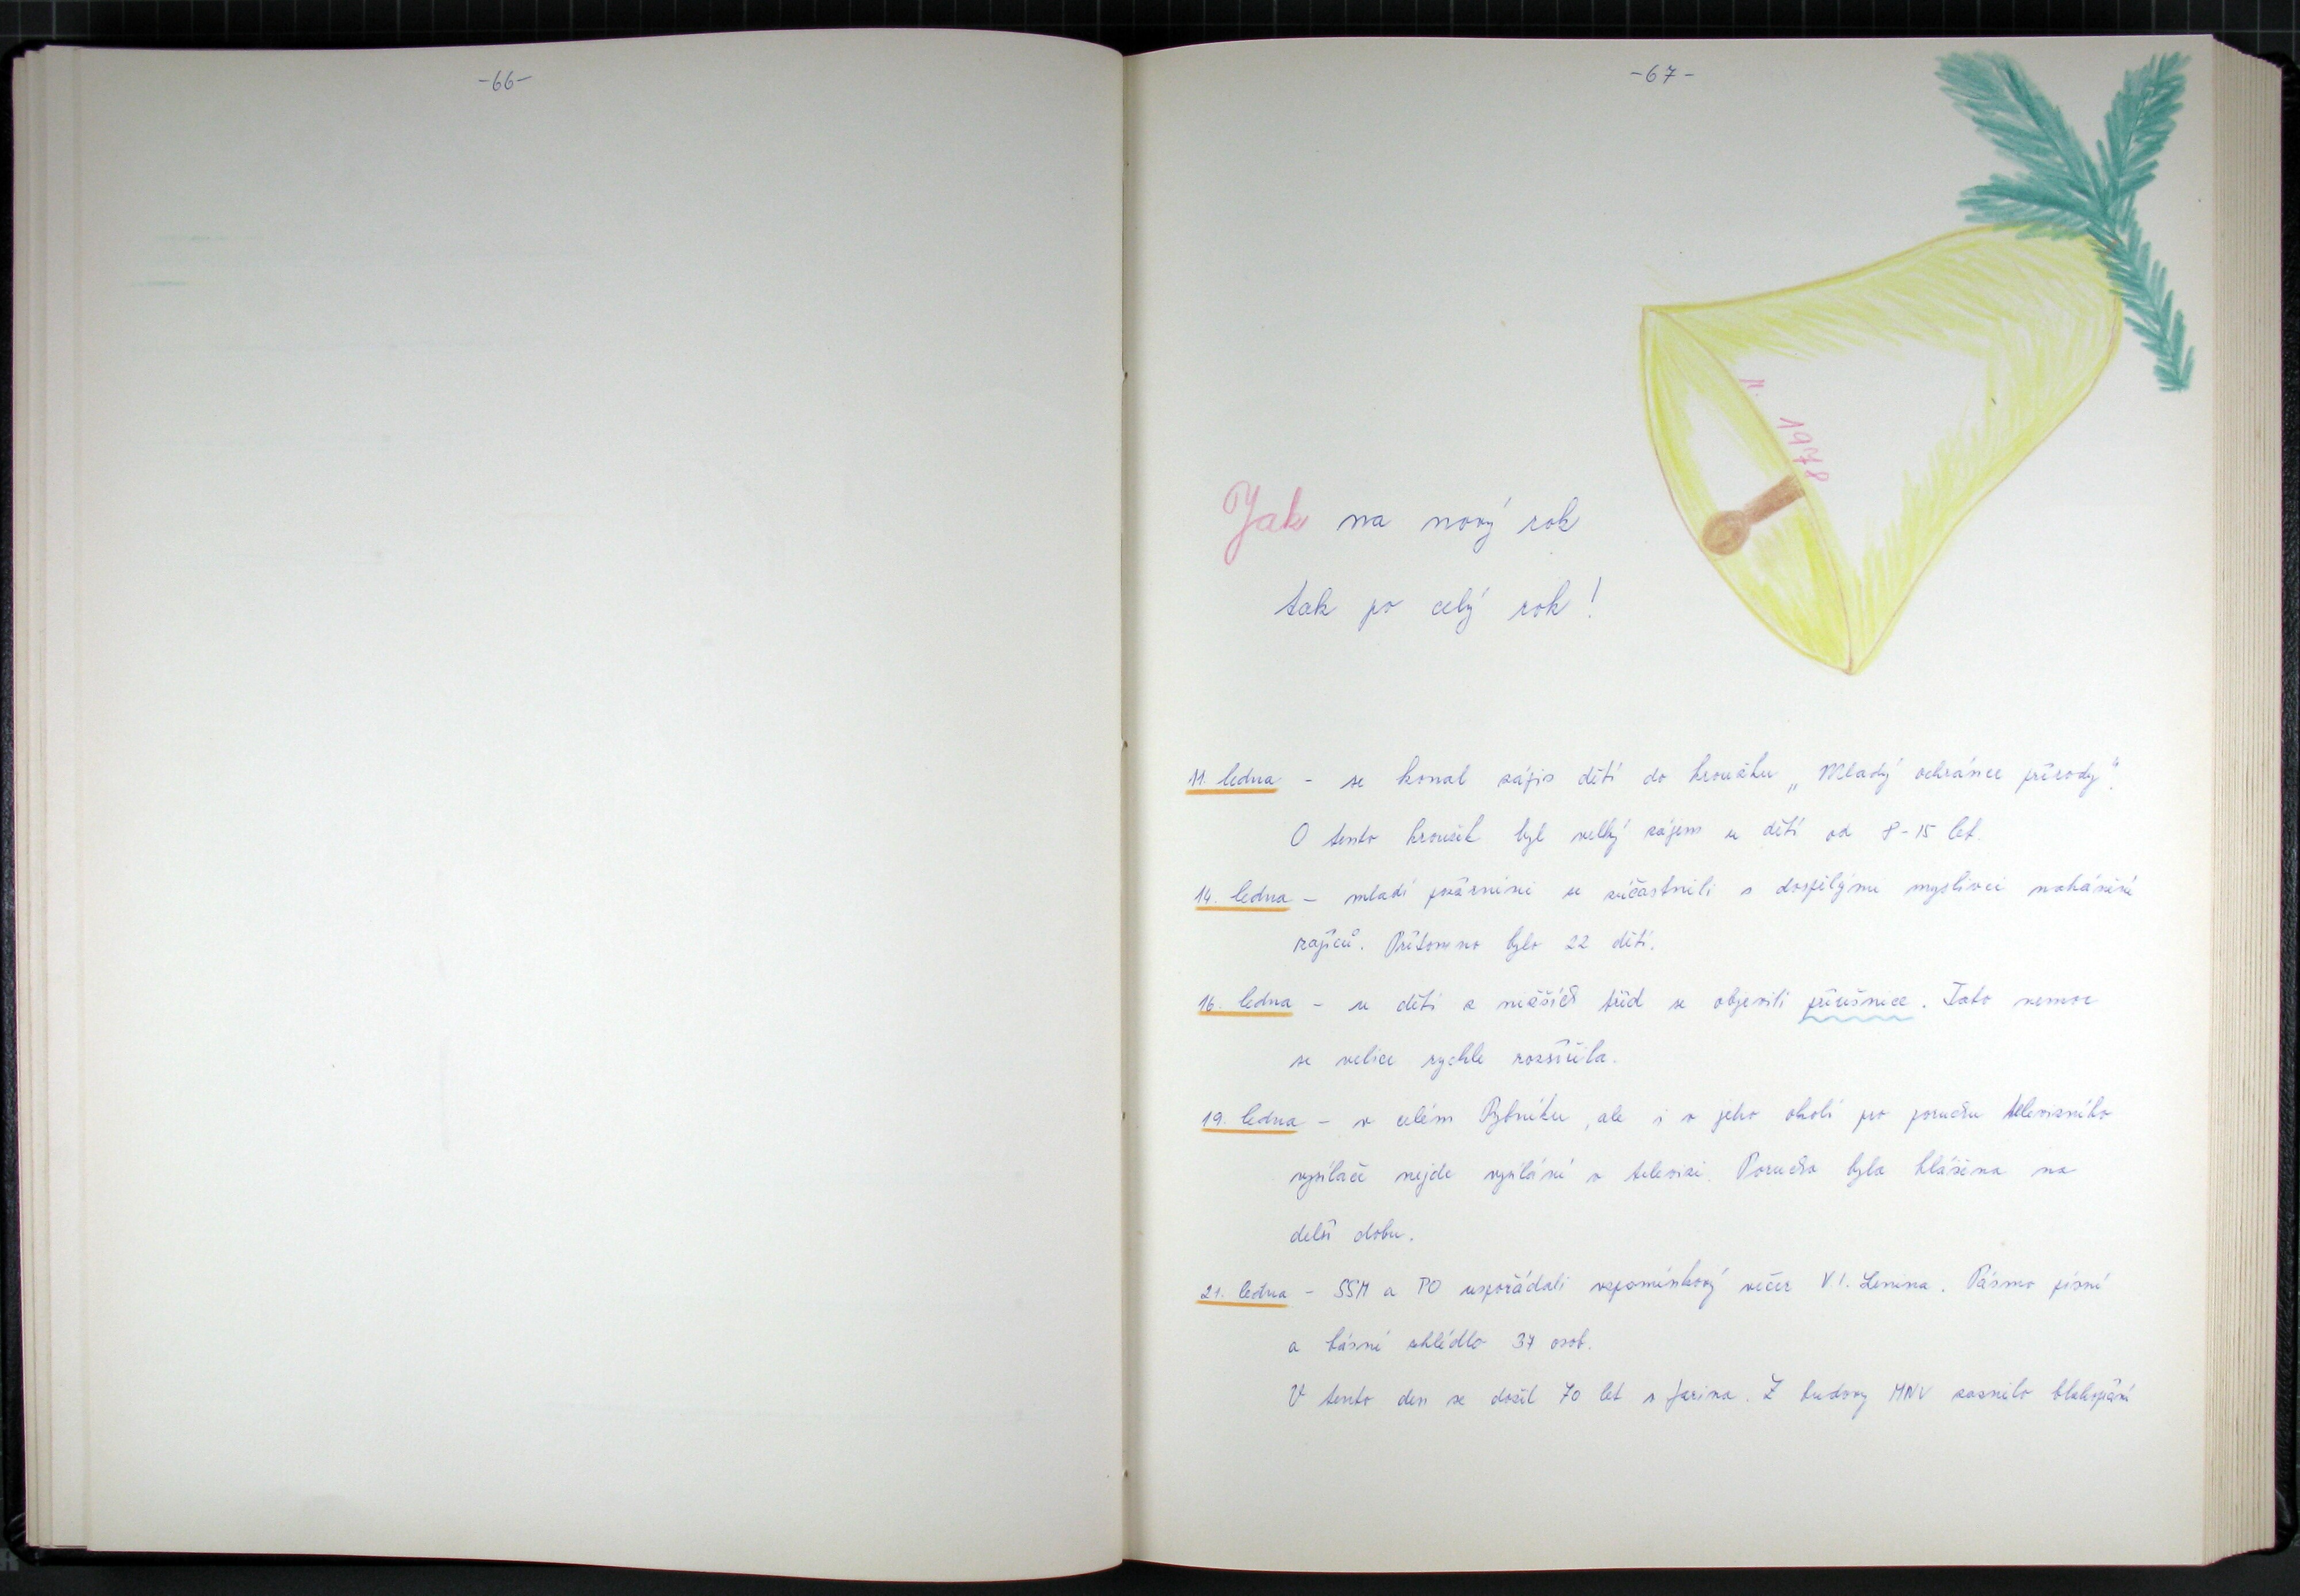 -66-
-67-
1978
Jak na nový rok
tak po celý rok!
11. ledna - se konal zápis dětí do kroužku „Mladý ochránce přírody".
O tento kroužek byl velký zájem u dětí od 8-15 let.
14. ledna - mladí požárníci se zúčastnili s dospělými myslivci nahánění
zajíců. Přítomno bylo 22 dětí.
16. ledna - u dětí z nižších tříd se objevili příušnice. Tato nemoc
se velice rychle rozšířila.
19. ledna - v celém Rybníku, ale i v jeho okolí po poruchu televizního
vysílače nejde vysílání v televizi. Porucha byla hlášena na
delší dobu.
21. ledna - SSM a PO uspořádali vzpomínkový večer V. I. Lenina. Pásmo písní
a básní shlédlo 37 osob.
V tento den se dožil 70 let s. Jarina. Z budovy MNV zaznělo blahopřání